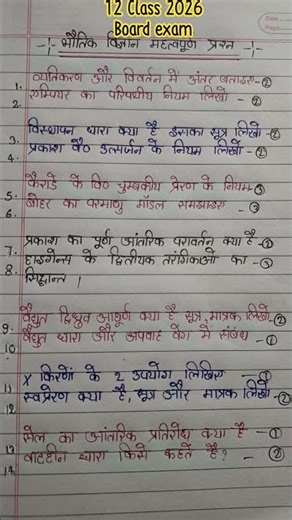 12 Class 2026
Board exam
भौतिक विज्ञान महत्वपूर्ण प्रश्न
1. व्यतिकरण और विवर्तन में अंतर बताइए -②
2. एम्पियर का परिपथीय नियम लिखो - ②
3. विस्थापन धारा क्या है इसका सूत्र लिखो -②
4. प्रकाश वै० उत्सर्जन के नियम लिखो -②
5. फैराडे के वि० चुम्बकीय प्रेरण के नियम -③
6. बोहर का परमाणु मॉडल समझाइए - ③
7. प्रकाश का पूर्ण आंतरिक परावर्तन क्या है -②
8. हाइगेन्स के द्वितीयक तरंगिकाओं का -③
सिद्धान्त ।
9. वैद्युत द्विध्रुव आघूर्ण क्या है सूत्र, मात्रक लिखो -②
10. वैद्युत धारा और अपवाह वेग में संबंध - ①
11. X किरणों के 2 उपयोग लिखिए - ①
12. स्वप्रेरण क्या है, सूत्र और मात्रक लिखो - ②
13. सेल का आंतरिक प्रतिरोध क्या है - ①
14. वाटहीन धारा किसे कहते हैं? - ②